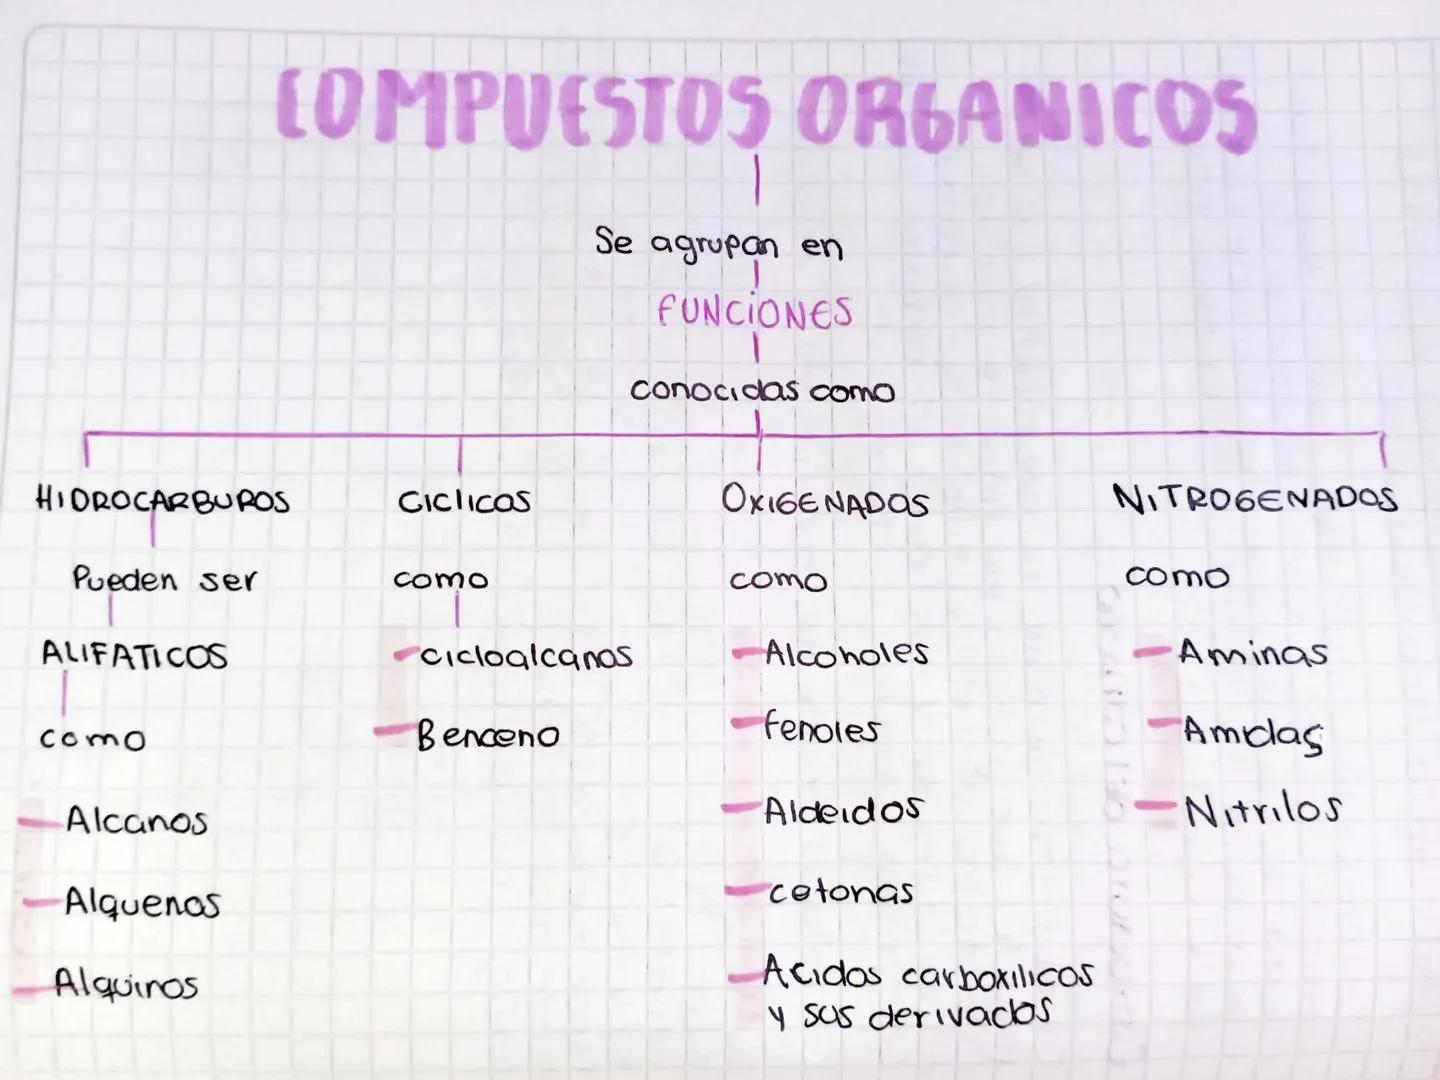 COMPUESTOS ORGANICOS
Se agrupan en
FUNCIONES
conocidas como
HIDROCARBUROS
CICLICOS
OXIGENADOS
NITROGENADOS
Pueden ser
como
como
como
ALIFATICOS
-cicloalcanos
-Alcoholes
-Aminas
como
-Benceno
-fenoles
-Amidas
-Alcanos
-Aldeidos
-Nitrilos
-Alquenos
-cetonas
-Alquinos
-Acidos carboxilicos
y sus derivados